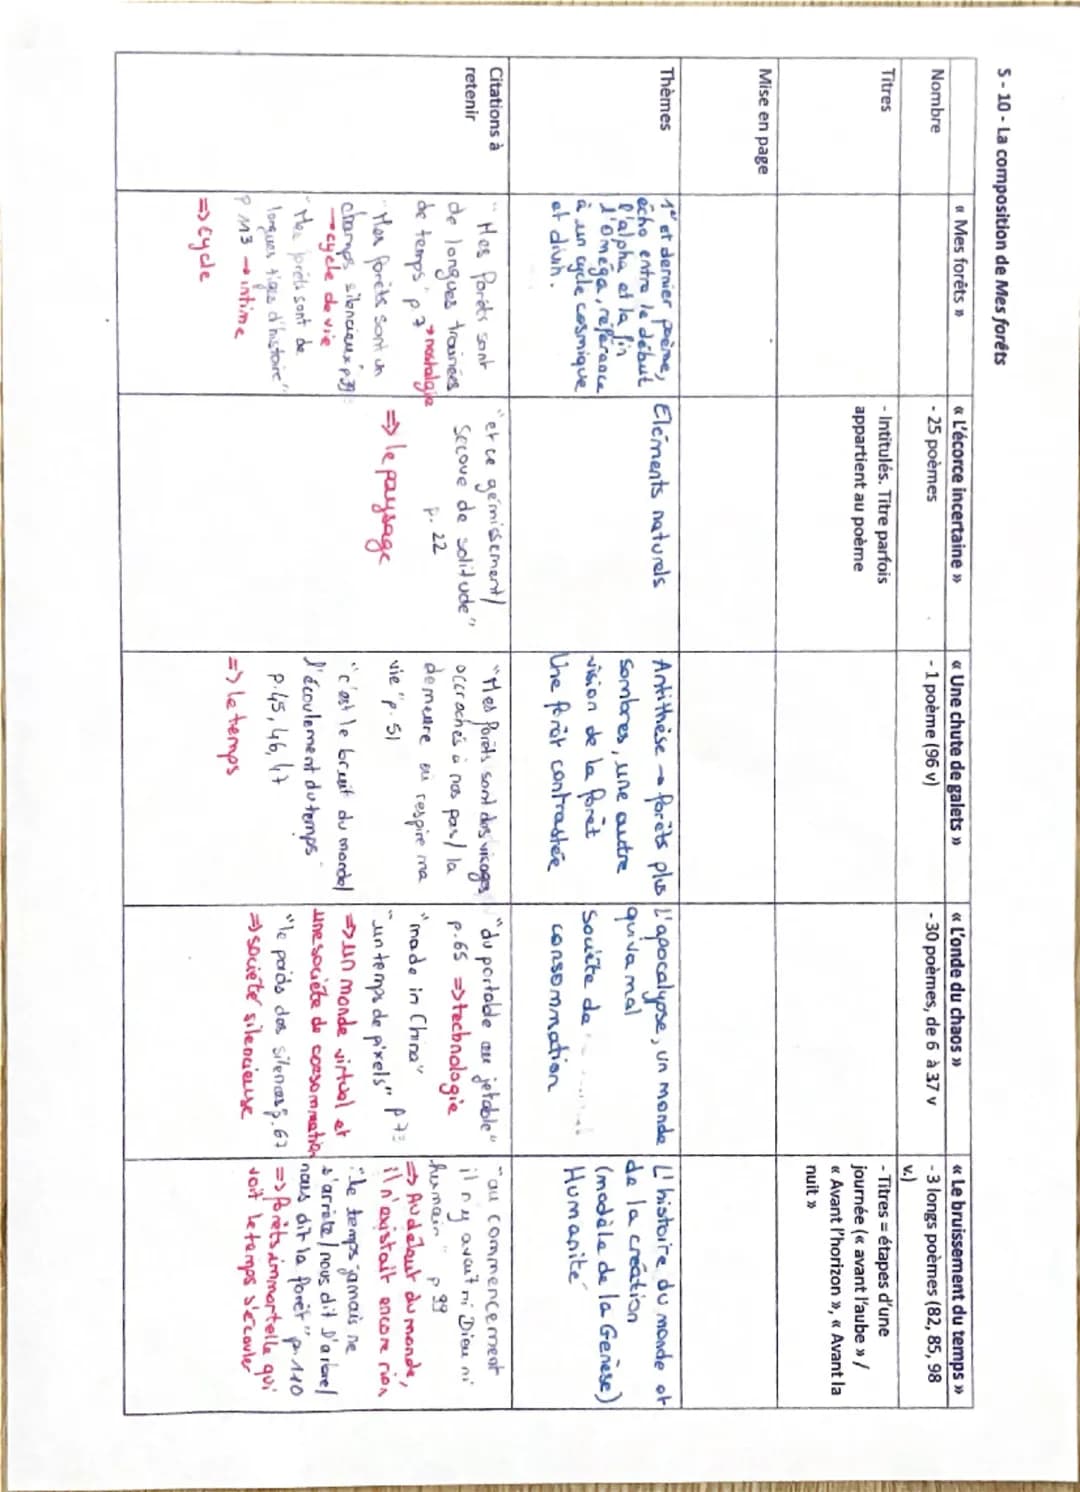 5 - 10 - La composition de Mes forêts
« Mes forêts »
« L'écorce incertaine »
« Une chute de galets »
« L'onde du chaos »
« Le bruissement du temps »
Nombre
- 25 poèmes
- 1 poème (96 v)
- 30 poèmes, de 6 à 37 v
- 3 longs poèmes (82, 85, 98
v.)
Titres
- Intitulés. Titre parfois
appartient au poème
- Titres = étapes d'une
journée (« avant l'aube » /
« Avant l'horizon », « Avant la
nuit »
Mise en page
Thèmes
1er et dernier poème,
écho entre le début
l'alpha et la fin
l'oméga, référence
à un cycle cosmique
et divin.
Eléments naturels
Antithèse → forêts plus
sombres, une autre
vision de la forêt
Une forêt contrastée
L'apocalypse, un monde
qui va mal
Société de
consommation
L'histoire du monde et
de la création
(modèle de la Genèse)
Humanité
Citations à
retenir
"Mes forêts sont
de longues trainées
de temps" p 7 → nostalgie
"Mes forêts sont un
champs silencieux" p 39
→ cycle de vie
"Mes forêts sont de
longues tiges d'histoire"
p 113 → intime
=> cycle
"et ce gémissement/
secoue de solitude"
p. 22
=> le paysage
"Mes forêts sont des visages
accrochés à nos pas/ la
demeure où respire ma
vie" p. 51
"c'est le bruit du monde/
l'écoulement du temps"
p. 45, 46, 47
=> le temps
"du portable au jetable"
p. 65 => technologie
"made in China"
"un temps de pixels" p 7
=> un monde virtuel et
une société de consommation
"le poids des silences p. 67
=> société silencieuse
"au commencement
il n'y avait ni Dieu ni
humain" p 99
=> Au début du monde,
il n'existait encore rien
"le temps jamais ne
s'arrête/ nous dit l'arbre/
nous dit la forêt" p. 110
=> forêts immortelle qui
voit le temps s'écouler